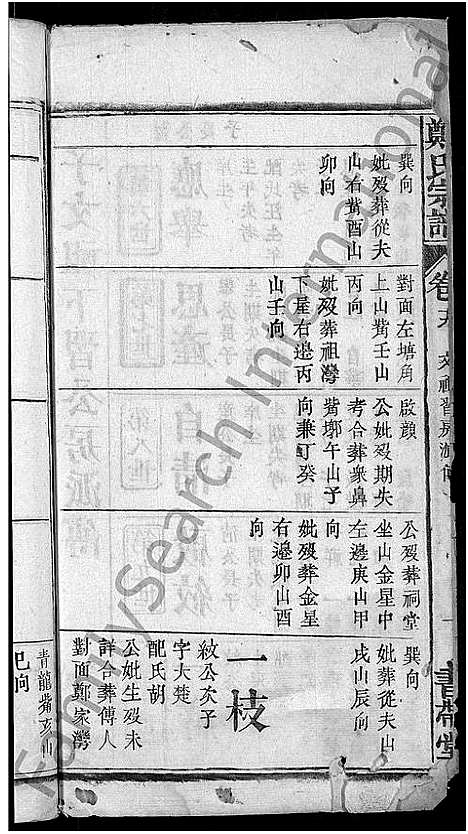 鄭氏宗譜
卷
書帶堂
巽向
妣歿葬從夫
山右觜酉山
卯向
對面左塘角
上山觜壬山
丙向
妣歿葬祖灣
下屋右邉丙
山壬向
啟顔
公妣歿期失
考合葬衆鼻
觜墎午山子
向兼丁癸
公歿葬祠堂
坐山金星中
左邉庚山甲
向
妣歿葬金星
右邉卯山酉
向
巽向
妣葬從夫山
戌山辰向
一枝
紋公次子
字大楚
配氏胡
公妣生歿未
詳合葬傅人
對面鄭家灣
青龍觜亥山
巳向
FamilySearch International